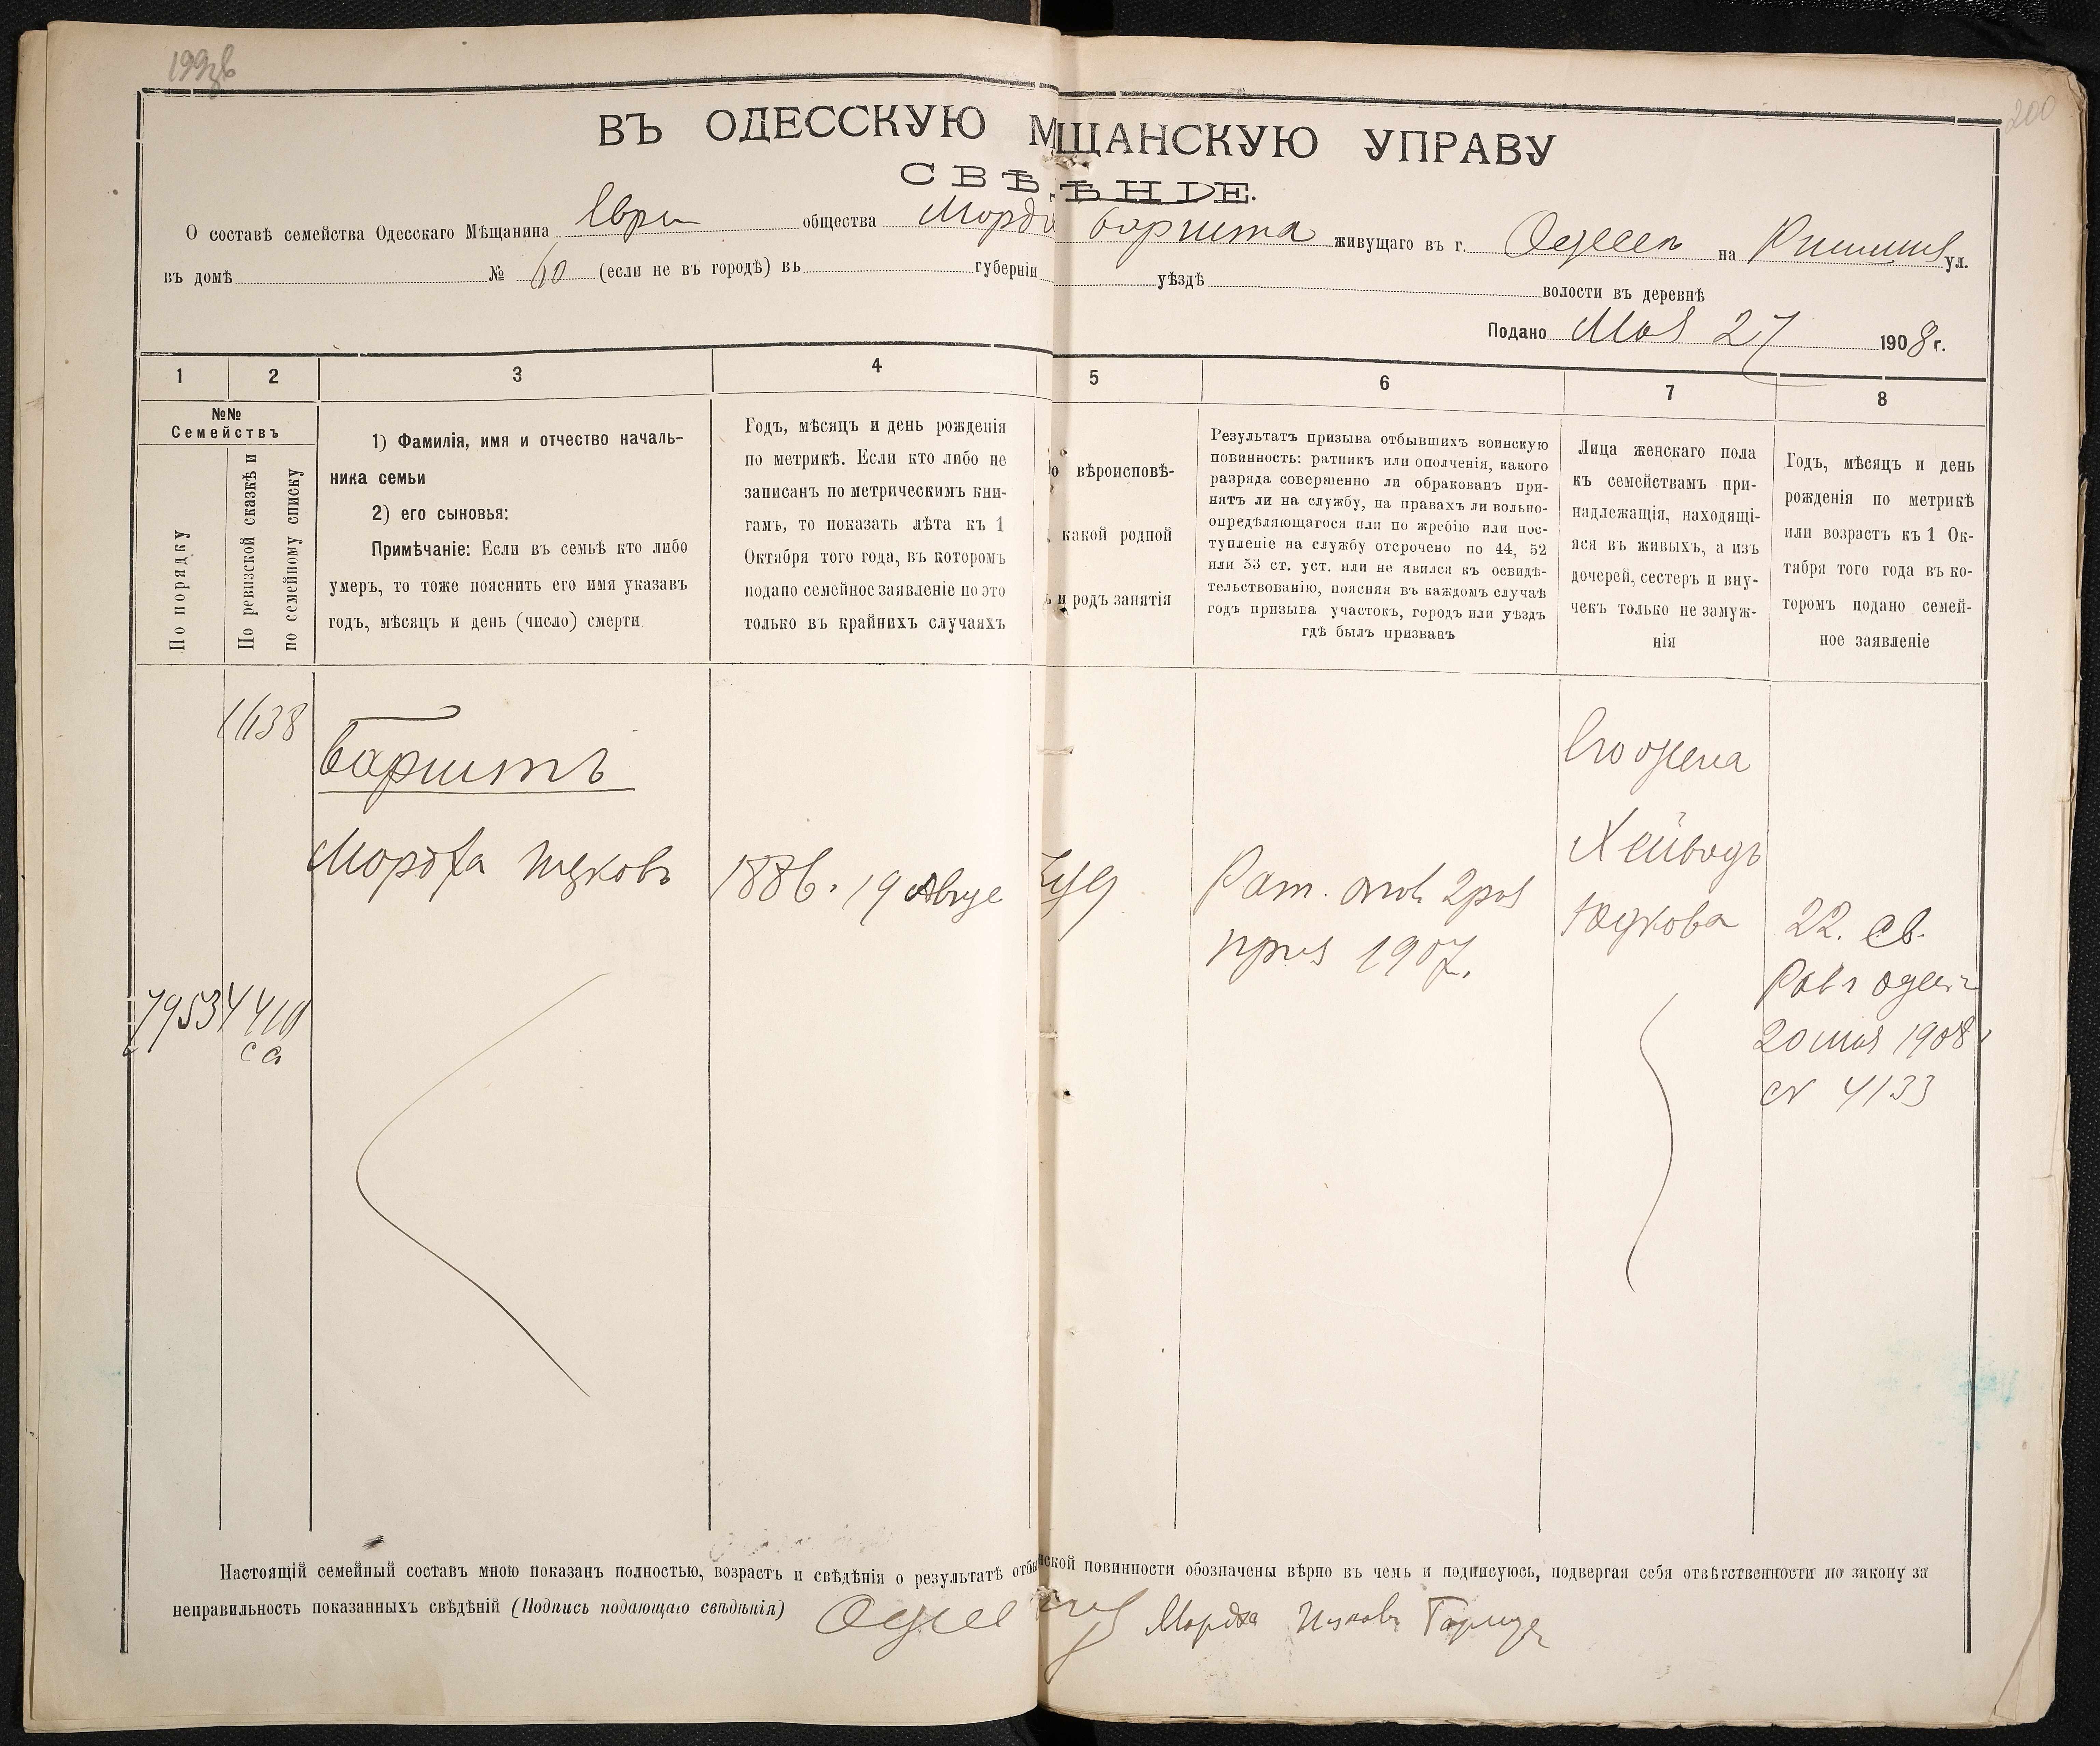 200
ВЪ ОДЕССКУЮ МЩАНСКУЮ УПРАВУ
СВѢѢНІЕ.
О составѣ семейства Одесскаго Мѣщанина Евре общества Мордх Баршта живущаго въ г. Одессѣ на Ришил ул.
въ домѣ № 60 (если не въ городѣ) въ губерніи уѣздѣ волости въ деревнѣ
Подано Мая 27 1908 г.
1 2 3 4 5 6 7 8
№№
Семействъ
По порядку
По ревизской сказкѣ и
по семейному списку
1) Фамилія, имя и отчество началь-
ника семьи
2) его сыновья:
Примѣчаніе: Если въ семьѣ кто либо
умеръ, то тоже пояснить его имя указавъ
годъ, мѣсяцъ и день (число) смерти
Годъ, мѣсяцъ и день рожденія
по метрикѣ. Если кто либо не
записанъ по метрическимъ кни-
гамъ, то показать лѣта къ 1
Октября того года, въ которомъ
подано семейное заявленіе но это
только въ крайнихъ случаяхъ
о вѣроисповѣ-
какой родной
и родъ занятія
Результатъ призыва отбывшихъ воинскую
повинность: ратникъ или ополченія, какого
разряда совершенно ли обракованъ при-
нятъ ли на службу, на правахъ ли вольно-
опредѣляющагося или по жребію или пос-
тупленіе на службу отсрочено по 44, 52
или 53 ст. уст. или не явился къ освидѣ-
тельствованію, поясняя въ каждомъ случаѣ
годъ призыва участокъ, городъ или уѣздъ
гдѣ былъ призванъ
Лица женскаго пола
къ семействамъ при-
надлежащія, находящі-
яся въ живыхъ, а изъ
дочерей, сестеръ и вну-
чекъ только не замуж-
нія
Годъ, мѣсяцъ и день
рожденія по метрикѣ
или возрастъ къ 1 Ок-
тября того года въ ко-
торомъ подано семей-
ное заявленіе
Барштъ
Его жена
Мордха Ицковъ 1886. 19 Авгус Иуд Рат. опол 2 раз
приз 1907.
Юдкова
22. св.
Рав. Одес
20 мая 1908
№ 4133
7953
Настоящій семейный составъ мною показанъ полностью, возрастъ и свѣдѣнія о результатѣ отбы нской повинности обозначены вѣрно въ чемъ и подписуюсь, подвергая себя отвѣтственности по закону за
неправильность показанныхъ свѣдѣній (Подпись подающаго свѣдѣнія) Мордха Ицковъ